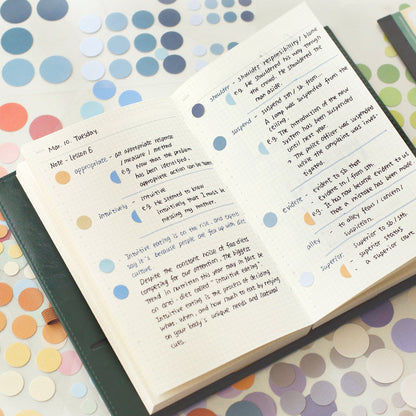 Mar 10. Tuesday
Note - Lesson 6
appropriate - an appropriate response / measure / method
e.g. Now that the problem
has been identified,
appropriate action can be taken
intuitively - intuitive
e.g. He seemed to know
intuitively that I must be
missing my mother.
Intuitive eating is on the rise, and experts
say it's because people are fed up with diet
culture.
Despite the constant noise of fad diets
competing for our attention, the biggest
trend in nutrition this year may in fact be
an anti-diet called "intuitive eating".
Intuitive eating is the process of deciding
what, when, and how much to eat by relying
on your body's unique needs and natural
cues.
shoulder - shoulder responsibility / blame
e.g. He shouldered his way through
the crowd. He shouldered the
man aside.
suspend - suspend sth / sb from..
e.g. A lamp was suspended from the
ceiling.
e.g. The introduction of the new
system has been suspended
until next year.
The police officer was suspended
while the complaint was inves-
tigated.
evidente - evident to sb that
- evident in / from sth.
e.g. It has now become evident to us
that a mistake has been made
allay - allay fears / concern /
suspicion.
superior - superior to sb / sth
- superior status
a superior court